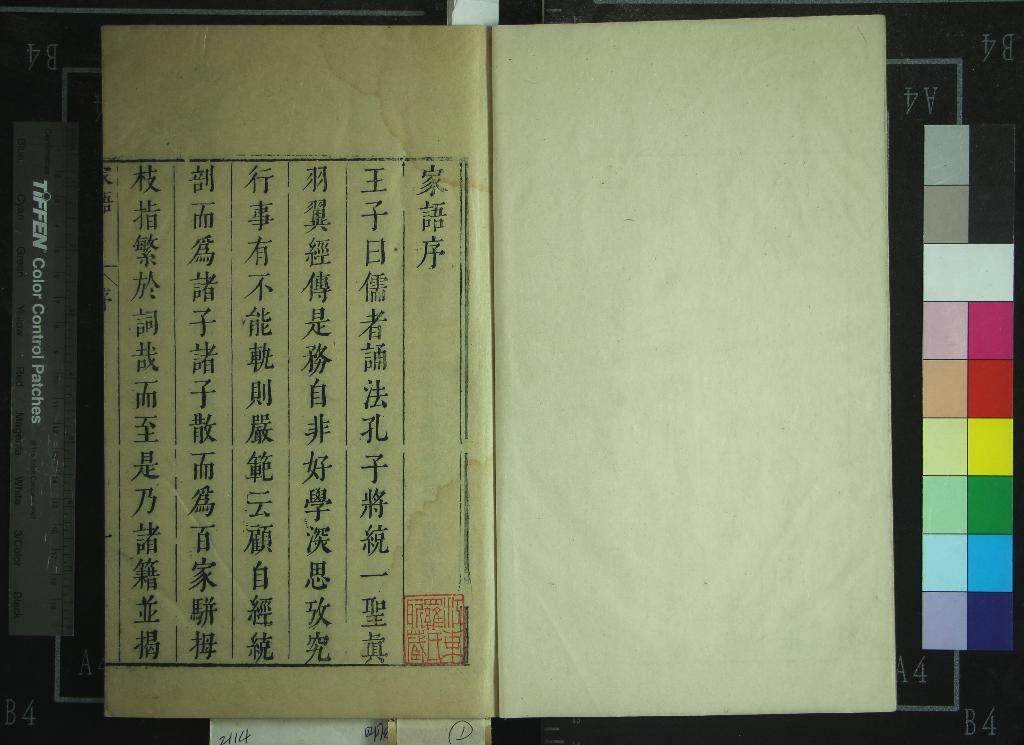 家語序
王子曰儒者誦法孔子將統一聖眞
羽翼經傳是務自非好學深思攷究
行事有不能軌則嚴範云顧自經統
剖而爲諸子諸子散而爲百家駢拇
枝指繁於詞哉而至是乃諸籍並揭
家語
序
一
TIFFEN Color Control Patches
Blue
Cyan
Green
Yellow
Red
Magenta
White
3/Color
Black
B4
B4
A4
A4
A4
B4
B4
2114
①